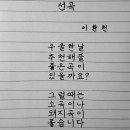 선곡
이환천
우울한날
추천해줄
좋은곡이
있을까요?
그럴때는
소곡이나
돼지곡이
좋습니다